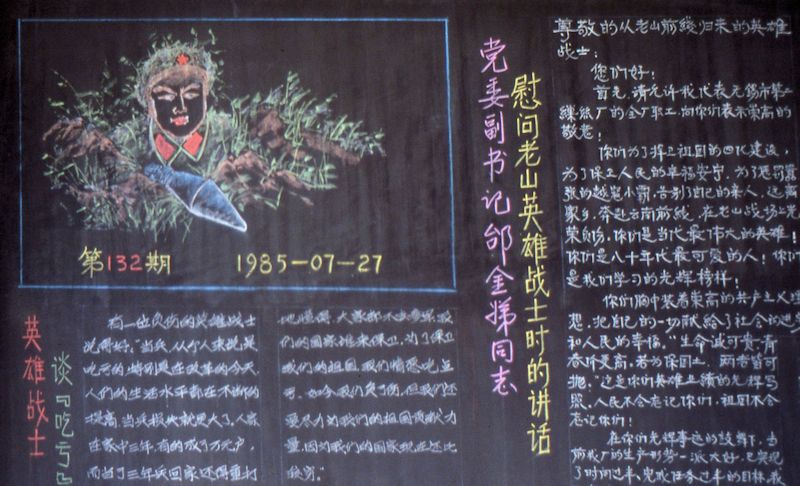 第132期 1985-07-27
英雄战士
谈『吃亏』
有一位负伤的英雄战士
说得好:"当兵,从个人来说,是
吃亏的,特别是在改革的今天,
人们的生活水平都在不断的
提高,当兵损失就更大了,人家
在家中三年,有的成了万元户,
而当了三年兵回家还得重打
们的国家谁来保卫,为了保卫
我们的祖国,我们情愿吃点
亏,如今我们负了伤,但我们还
要尽力为我们的祖国贡献力
量,因为我们的国家现在还比
较穷。"
党委副书记邰金娣同志
慰问老山英雄战士时的讲话
尊敬的从老山前线归来的英雄
战士:
您们好!
首先,请允许我代表无锡市第二
缫丝厂的全厂职工,向你们表示崇高的
敬意!
你们为了捍卫祖国的四化建设,
为了保卫人民的幸福安宁,为了惩罚嚣
张的越寇小霸,告别了自己的亲人,远离
家乡,奔赴云南前线,在老山战场上光
荣负伤,你们是当代最伟大的英雄!
你们是八十年代最可爱的人!你们
是我们学习的光辉榜样!
你们胸中装着崇高的共产主义理
想,把自己的一切献给了社会的进步
和人民的幸福,"生命诚可贵,青
春价更高,若为保国土,两者皆可
抛,"这是你们英雄业绩的光辉写
照,人民不会忘记你们,祖国不会
忘记你们!
在你们光辉事迹的鼓舞下,当
前我厂的生产形势一派大好,已实现
了时间过半,完成任务过半的目标,我